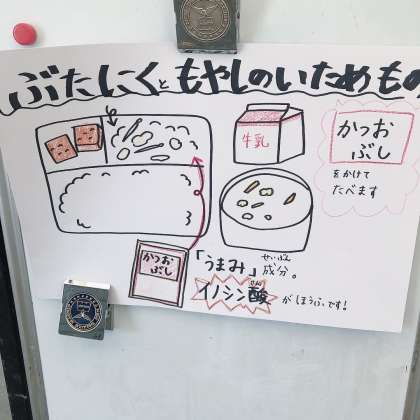 ぶたにくともやしのいためもの
牛乳
かつお
ぶし
をかけて
たべます
かつお
ぶし
「うまみ」成分。
せいぶん
イノシン酸がほうふです!
さん